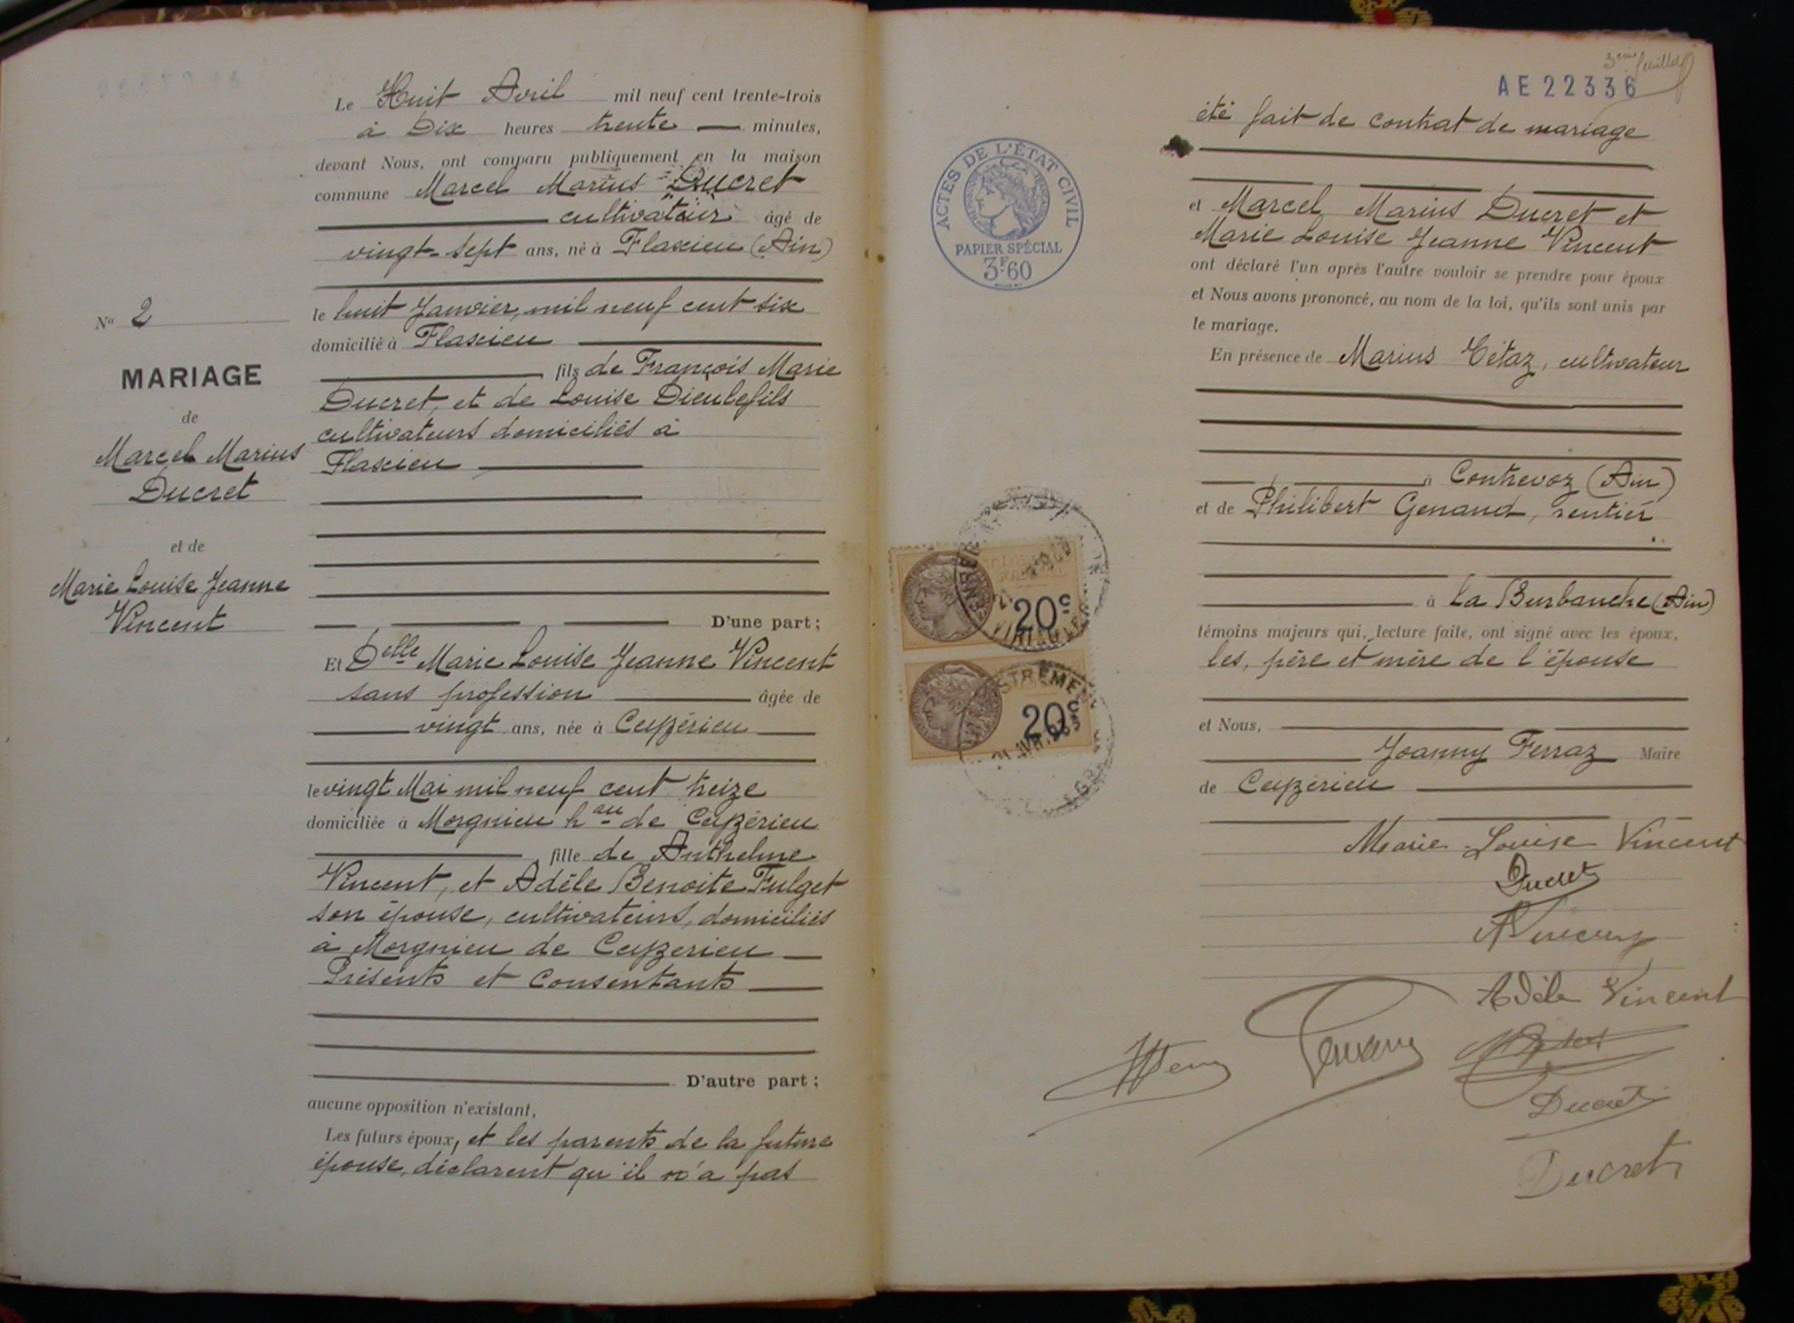 Le Huit Avril mil neuf cent trente-trois
à Dix heures trente minutes,
devant Nous, ont comparu publiquement en la maison
commune Marcel Marius Ducret
cultivateur âgé de
vingt-sept ans, né à Flaxieu (Ain)
le huit Janvier, mil neuf cent six
domicilié à Flaxieu
fils de François Marie
Ducret, et de Louise Dieulefils
cultivateurs domiciliés à
Flaxieu
D'une part ;
Et Delle Marie Louise Jeanne Vincent
sans profession âgée de
vingt ans, née à Ceyzérieu
le vingt Mai mil neuf cent treize
domiciliée à Morgnieu hau de Ceyzérieu
fille de Anthelme
Vincent, et Adèle Benoite Fulget
son épouse, cultivateurs, domiciliés
à Morgnieu de Ceyzerieu
Présents et Consentants
D'autre part ;
aucune opposition n'existant,
Les futurs époux, et les parents de la future
épouse, déclarent qu'il n'a pas
No 2
MARIAGE
de
Marcel Marius
Ducret
et de
Marie Louise Jeanne
Vincent
3eme feuillet
AE 22336
été fait de contrat de mariage
et Marcel Marius Ducret et
Marie Louise Jeanne Vincent
ont déclaré l'un après l'autre vouloir se prendre pour époux
et Nous avons prononcé, au nom de la loi, qu'ils sont unis par
le mariage.
En présence de Marius Tétaz, cultivateur
à Contrevoz (Ain)
et de Philibert Genand, rentier
à La Burbanche (Ain)
témoins majeurs qui, lecture faite, ont signé avec les époux,
les, père et mère de l'épouse
et Nous,
Joanny Ferraz Maire
de Ceyzérieu
Marie Louise Vincent
Ducret
A Vincent
Adèle Vincent
Ducret
Ducret
ACTES DE L'ÉTAT CIVIL
PAPIER SPÉCIAL
3F.60
20c
20c